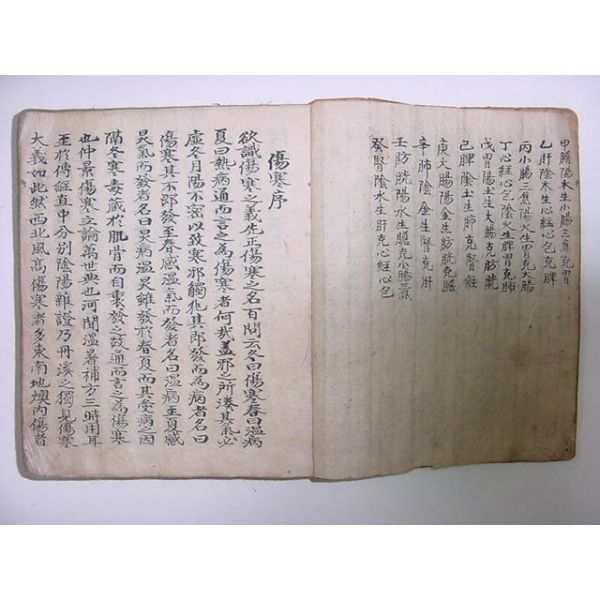 甲膽陽木生小腸三焦克胃
乙肝陰木生心經心包克脾
丙小腸三焦陽火生胃克大腸
丁心經心包陰火生脾胃克肺
戊胃陽土生大腸克膀胱
己脾陰土生肺克腎經
庚大腸陽金生膀胱克膽
辛肺陰金生腎克肝
壬膀胱陽水生膽克小腸三焦
癸腎陰水生肝克心經心包
傷寒序
欲識傷寒之義先正傷寒之名百問云冬曰傷寒春曰溫病
夏曰熱病通而言之為傷寒者何哉盖邪之所湊其氣必
虛冬月陽不密以致寒邪觸冒其即發而為病者名曰
傷寒其不即發至春感溫氣而發者名曰溫病至夏感
炅氣而發者名曰炅病溫炅雖發於春夏而其受病之因
隔冬寒毒藏於肌骨而自東發之故通而言之為傷寒
也仲景傷寒立論萬世典也河間溫暑補方三時用耳
至於傳經直中分別陰陽雜證乃丹溪之獨見傷寒
大義如此然西北風高傷寒者多東南地燠內傷者